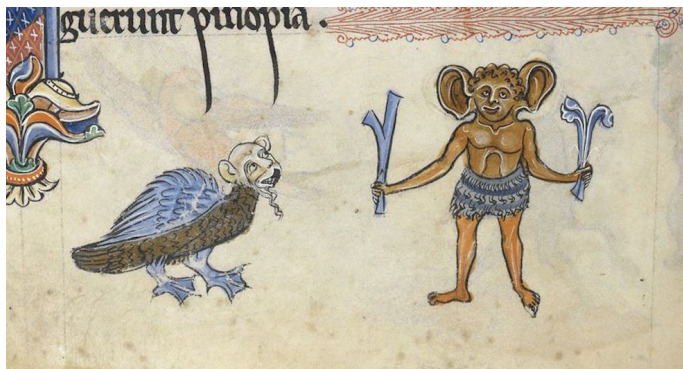 guerunt pinopia .